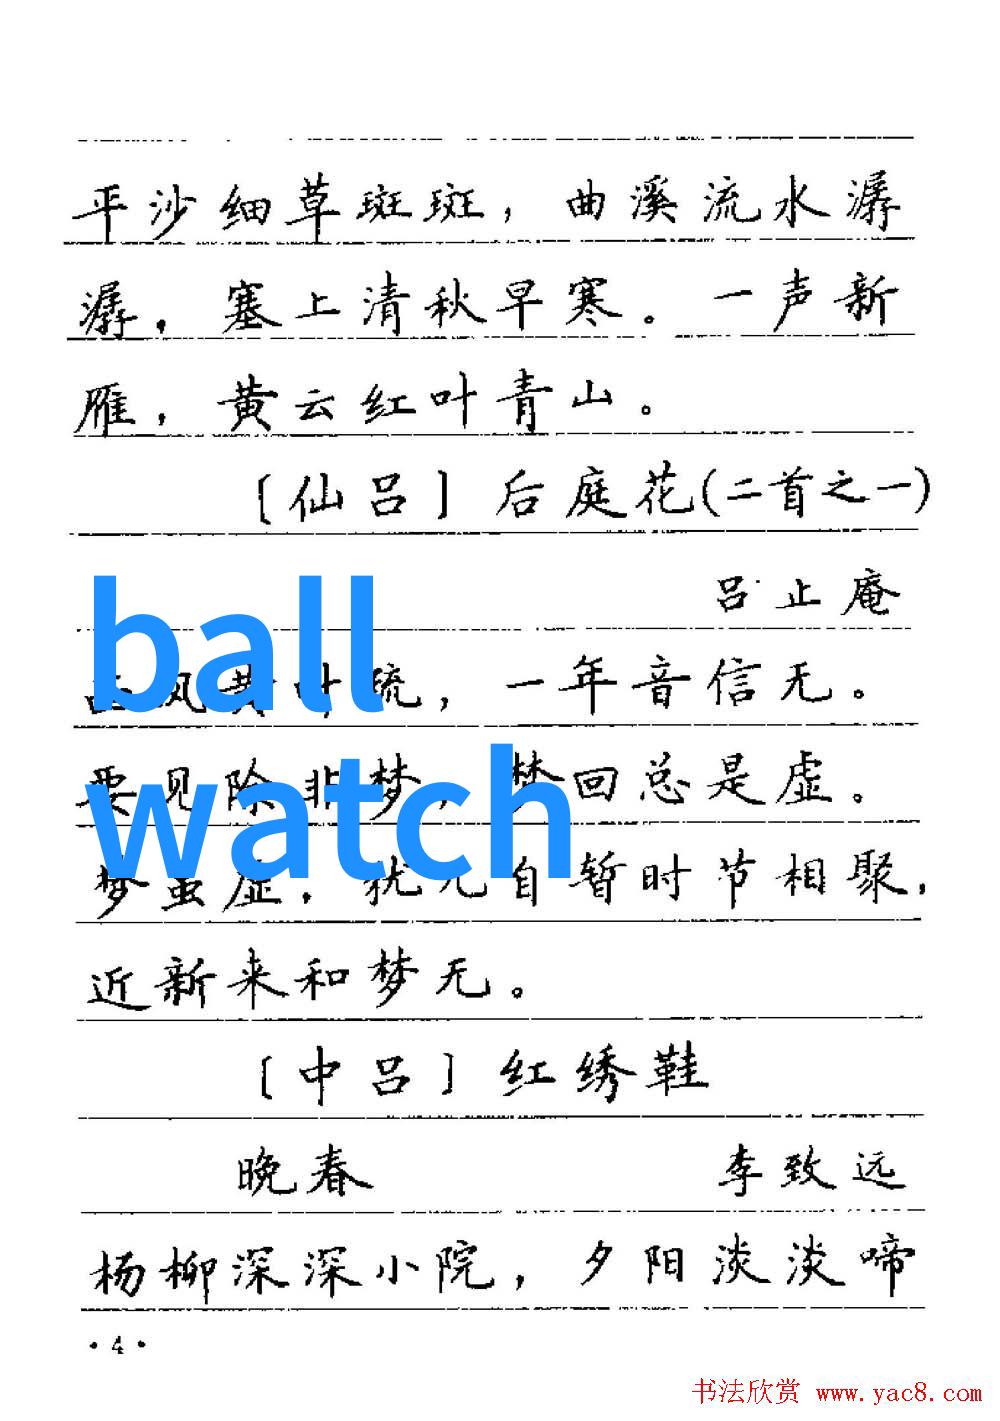 平沙细草斑斑，曲溪流水潺
潺，塞上清秋早寒。一声新
雁，黄云红叶青山。
〔仙吕〕后庭花(二首之一)
吕止庵
ball
西风黄叶疏，一年音信无。
watch
要见除非梦，梦回总是虚。
梦虽虚，犹兀自暂时节相聚，
近新来和梦无。
〔中吕〕红绣鞋
晚春 李致远
杨柳深深小院，夕阳淡淡啼
·4·
书法欣赏 www.yac8.com